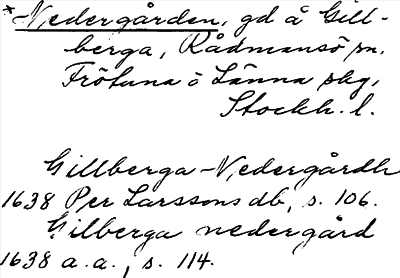 *-Nedergården, gd å Gill-
berga, Rådmansö sn.
Frötuna o Länna skg,
Stockh. l.
Gillberga-Nedergårdh
1638 Per Larssons db, s. 106.
Gilberga nedergård
1638 a.a., s. 114.